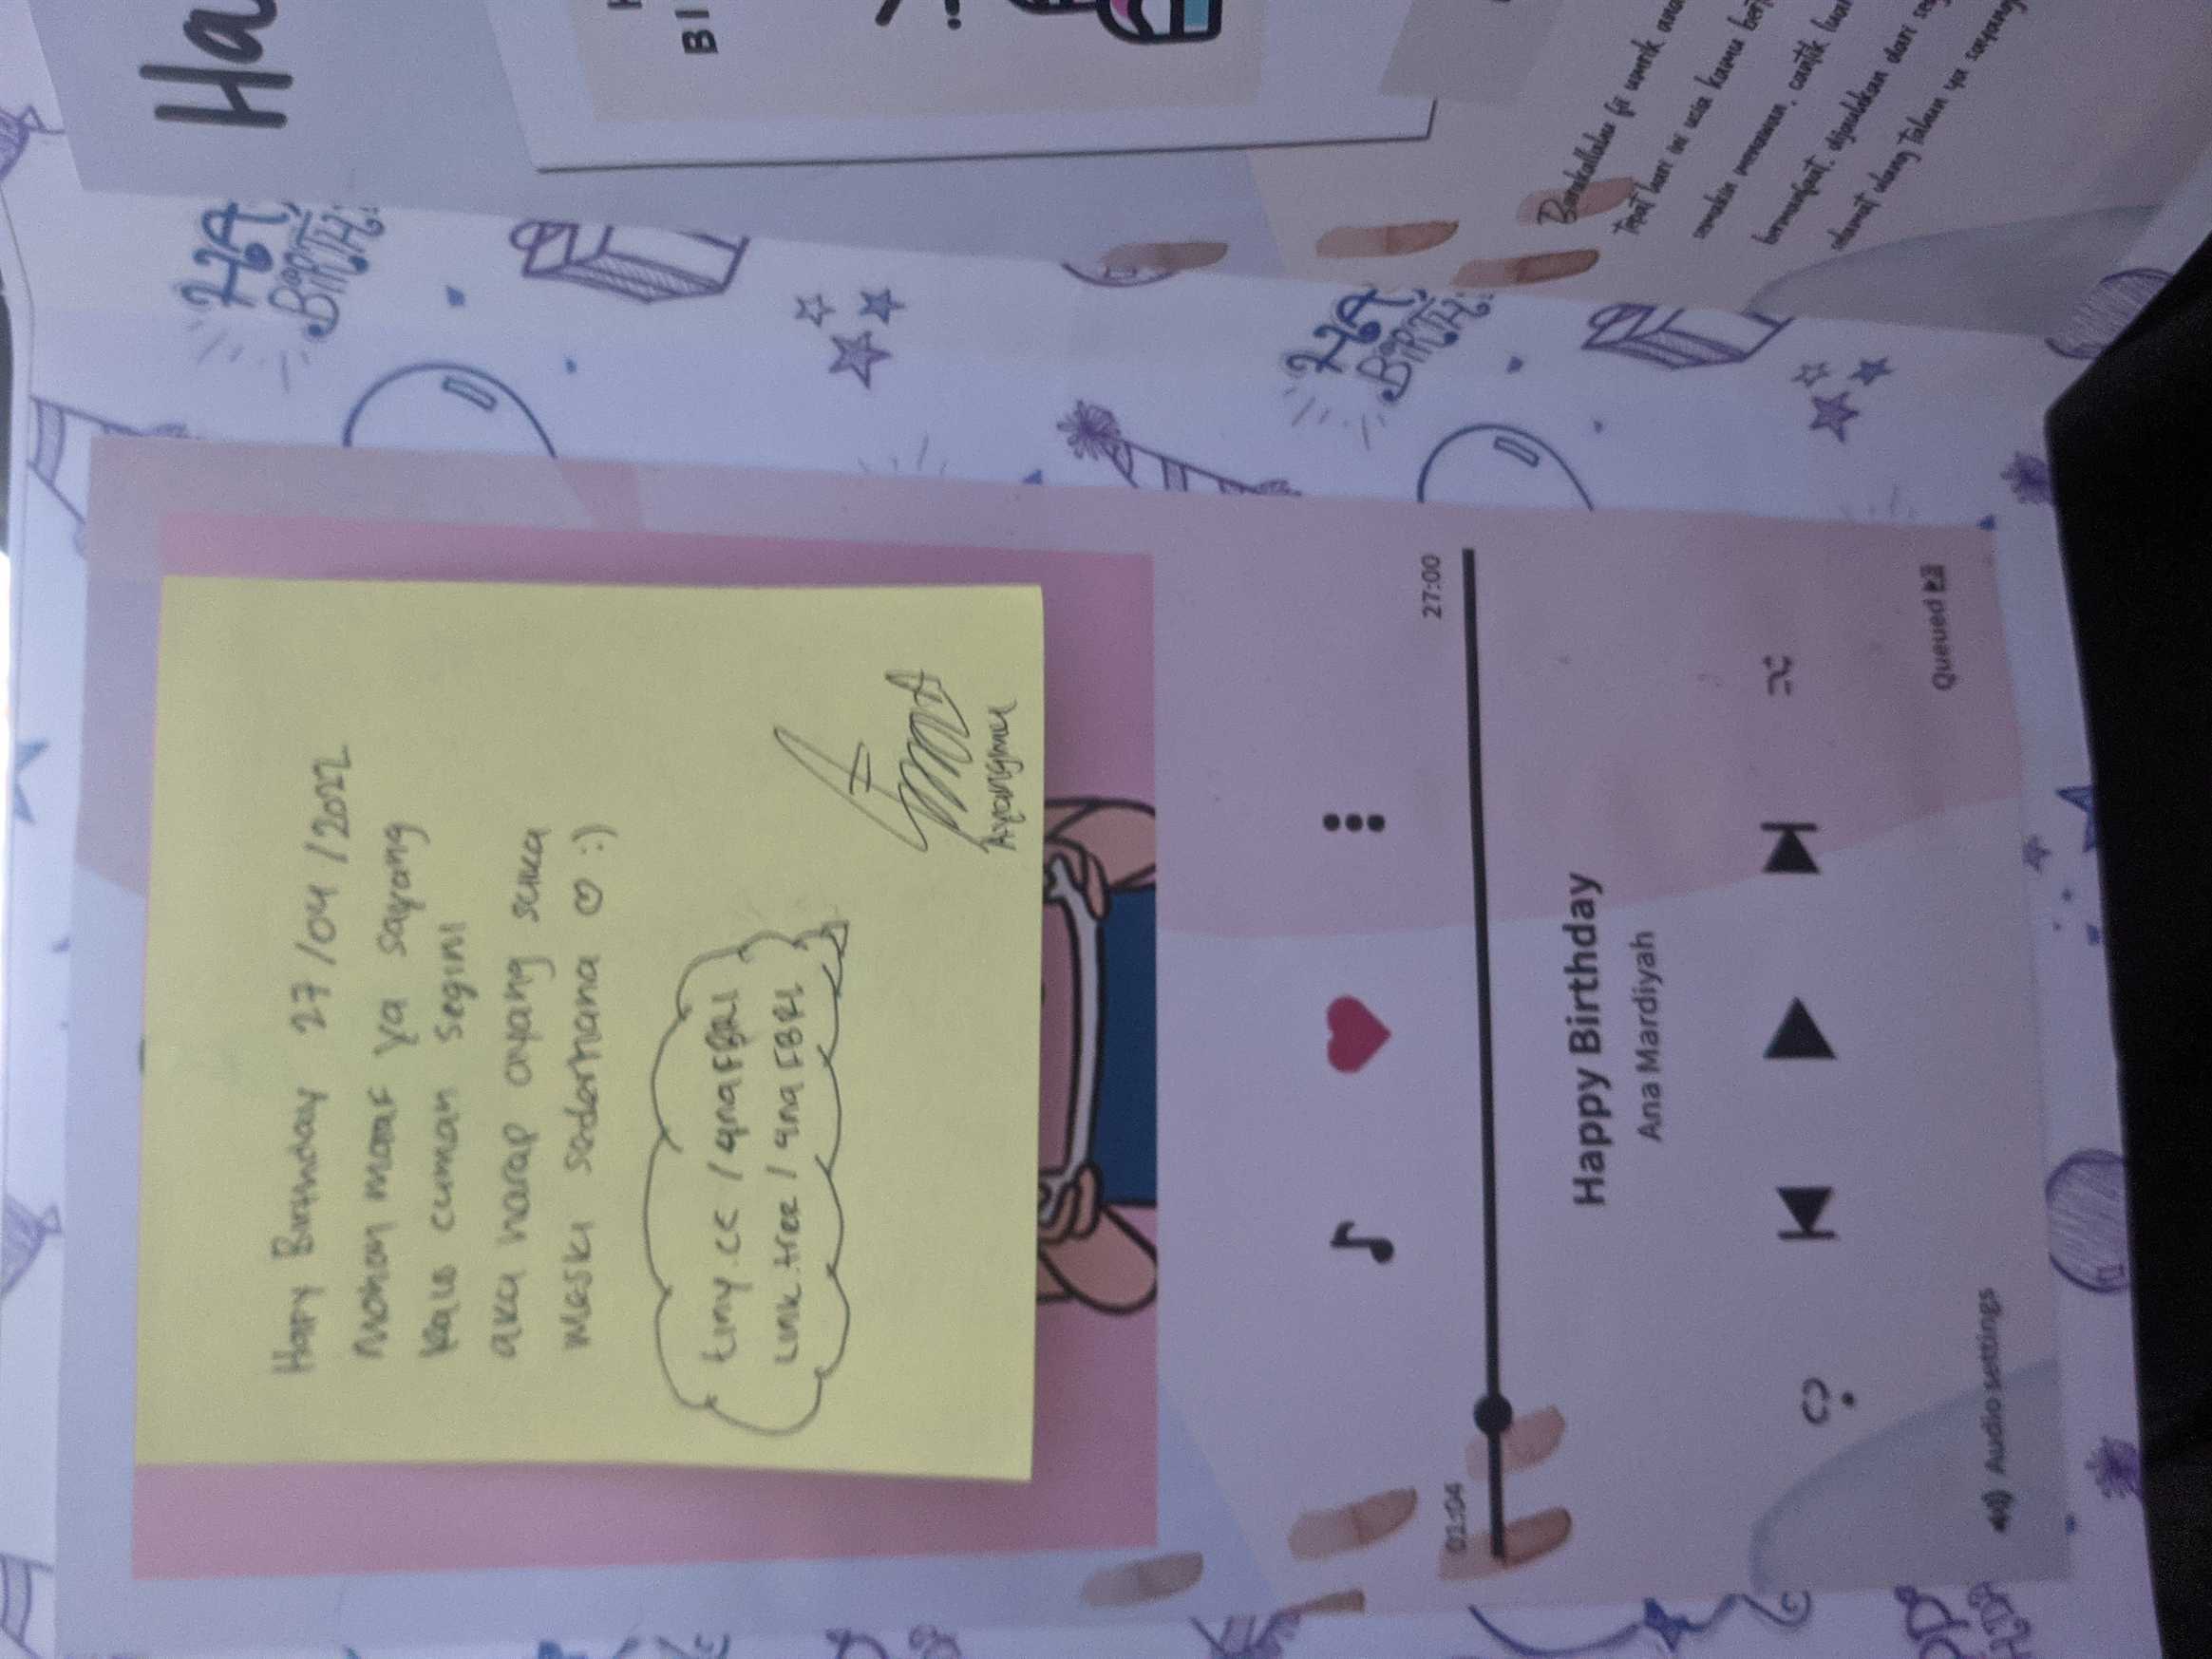 Hapy Birthday 27/04/2022
Mohon maaf ya sayang
kalo cuman segini
aku harap ayang suka
meski sederhana ♡ :)
tiny.cc / qnaFBRI
Link.tree / qnaFBRI
Ayangmu
27:00
Happy Birthday
Ana Mardiyah
Queued
Audio settings
HA
BIRTH
HA
BIRTH
Ha
BI
Barakallahu fii umrik
Tepat hari ini usia kamu
semakin menawan, cantik
bermanfaat, dijauhkan dari
selamat ulang tahun ya sayang